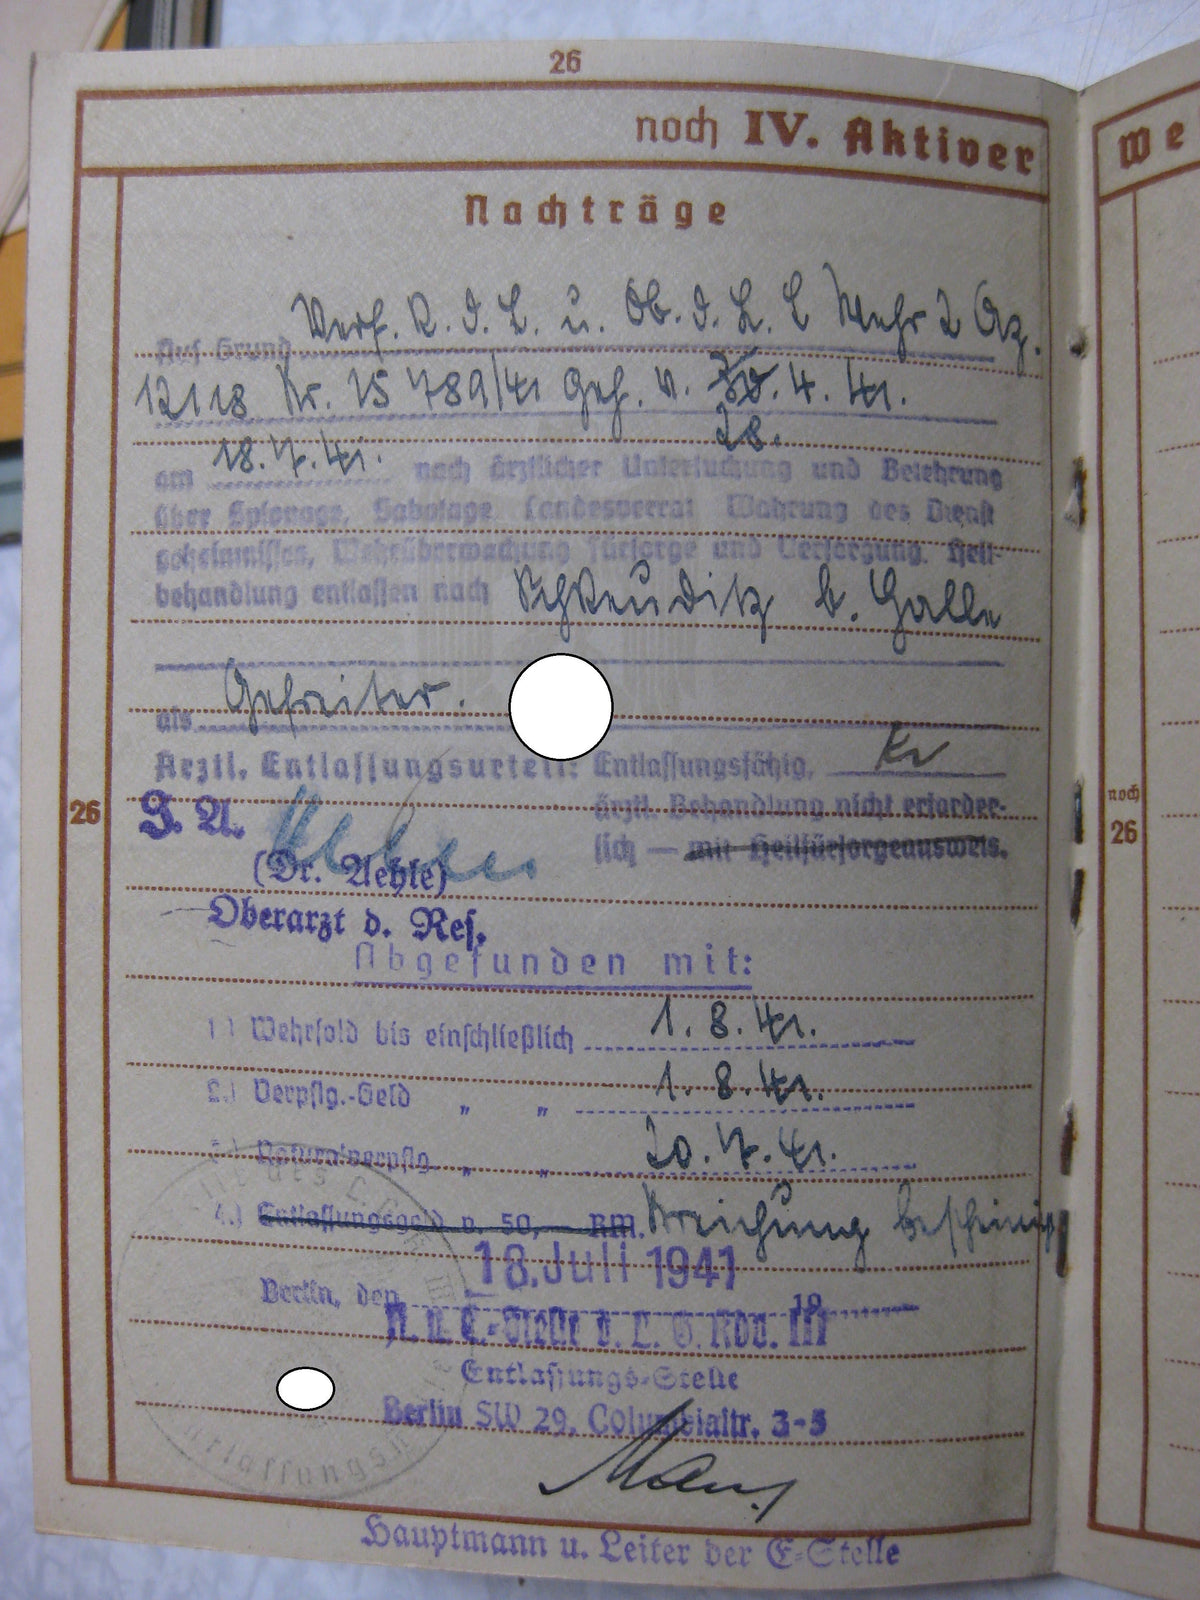 26
noch IV. Aktiver
We
Nachträge
Auf Grund Verf. R. d. L. u. Ob. d. L. L Wehr 2 Az.
12118 Nr. 15789/41 Geh. v. 30. 4. 41.
28.
am 18.7.41. nach ärztlicher Untersuchung und Belehrung
über Spionage, Sabotage Landesverrat Wahrung des Dienst
geheimnisses, Wehrüberwachung Fürsorge und Versorgung. Heil-
behandlung entlassen nach Schkeuditz b. Halle
als Gefreiter.
Ärztl. Entlassungsurteil: Entlassungsfähig, kv
ärztl. Behandlung nicht erforder-
lich — mit Heilfürsorgeausweis.
26
I. A.
(Dr. Aehle)
Oberarzt d. Res.
noch
26
Abgefunden mit:
1.) Wehrsold bis einschließlich 1.8.41.
2.) Verpflg.-Geld " " 1.8.41.
3.) Naturalverpflg. " " 20.7.41.
4.) Entlassungsgeld v. 50,— RM.
18. Juli 1941
Berlin, den 19
A. u. E.-Stelle d. L. G. Kdo. III
Entlassungs-Stelle
Berlin SW 29, Columbiastr. 3-5
Hauptmann u. Leiter der E-Stelle